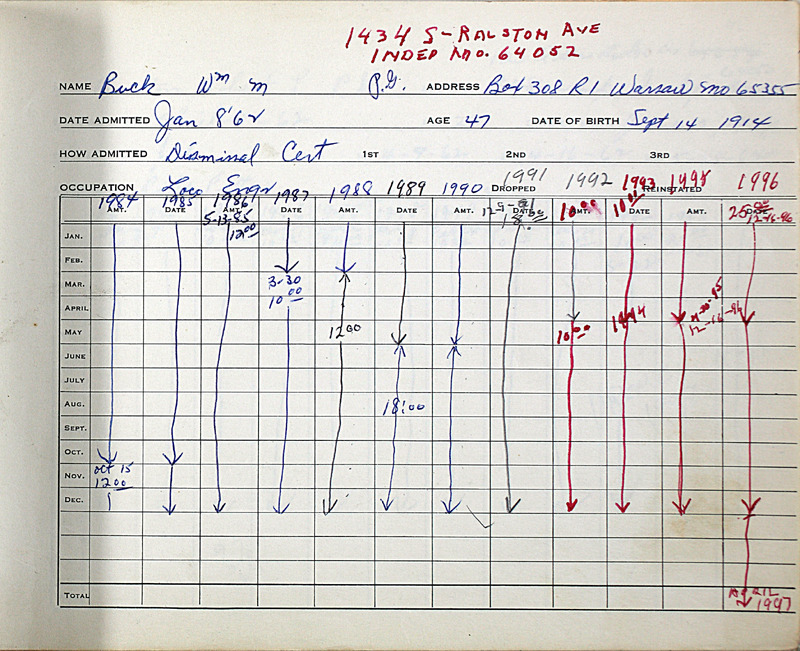 1434 S-RALSTON AVE
INDEP MO. 64052
NAME Buck Wm M P.G. ADDRESS Box 308 R1 Warsaw Mo 65355
DATE ADMITTED Jan 8'62 AGE 47 DATE OF BIRTH Sept 14 1914
HOW ADMITTED Dismissal Cert 1ST 2ND 3RD
OCCUPATION Loco Engr DROPPED REINSTATED
1984 1985 1986 1987 1988 1989 1990 1991 1992 1993 1995 1996
AMT. DATE AMT. DATE AMT. DATE AMT. DATE AMT. DATE AMT. DATE
5-13-85 12-9-91 18.00 10.00 10.00 25.00 12-16-96
JAN. 12.00
FEB.
MAR. 3-30
10.00
APRIL 1994 12-16-94
MAY 12.00 10.00
JUNE
JULY
AUG. 18.00
SEPT.
OCT.
NOV. Oct 15
12.00
DEC.
TOTAL APRIL
1997